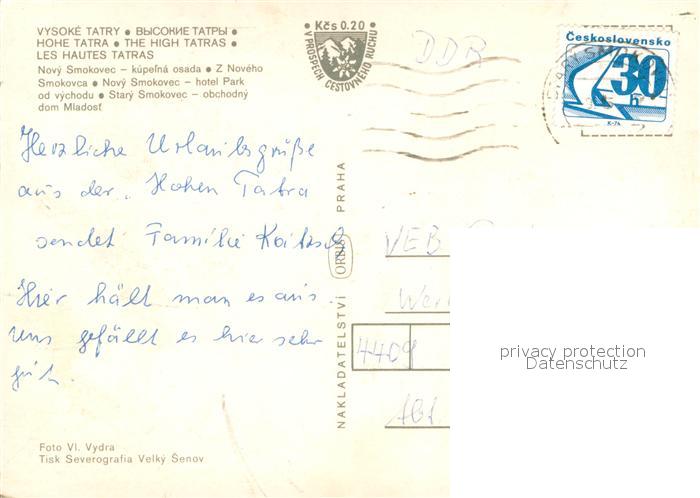 VYSOKÉ TATRY ● ВЫСОКИЕ ТАТРЫ ●
HOHE TATRA ● THE HIGH TATRAS ●
LES HAUTES TATRAS
Nový Smokovec – kúpeľná osada ● Z Nového
Smokovca ● Nový Smokovec – hotel Park
od východu ● Starý Smokovec – obchodný
dom Mladosť
Kčs 0.20
V PROSPECH CESTOVNÉHO RUCHU
DDR
Československo
30
h
K-74
Herzliche Urlaubsgrüße
aus der Hohen Tatra
sendet Familie
Hier hält man es aus.
Uns gefällt es hier sehr
gut.
NAKLADATELSTVÍ ORBIS PRAHA
VEB
4409
Abt
privacy protection
Datenschutz
Foto Vl. Vydra
Tisk Severografia Velký Šenov